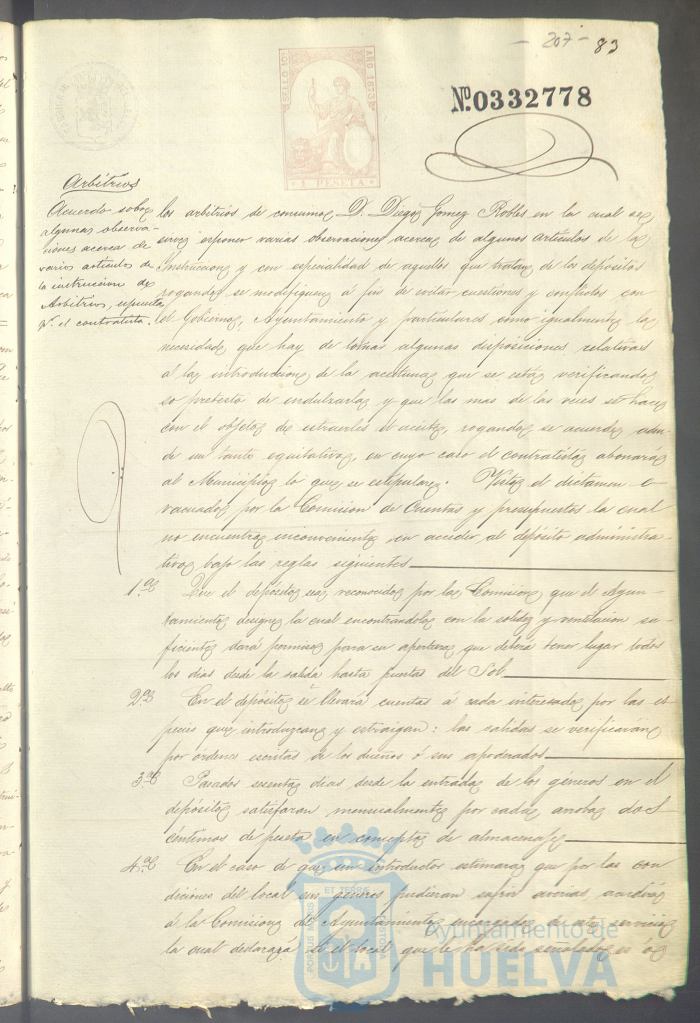 - 207 - 83
SELLO 10º AÑO 1873
1 PESETA
Nº 0332778
Arbitrios
Acuerdo sobre
algunas observa-
ciones acerca de
varios artículos de
la instruccion de
Arbitrios, espuestas
pr. el contratista.
los arbitrios de consumos D. Diego Gomez Robles en la cual se
sirve esponer varias observaciones acerca de algunos articulos de la
Instruccion y con especialidad de aquellos que tratan de los depósitos
rogando se modifiquen á fin de evitar cuestiones y conflictos con
el Gobierno, Ayuntamiento y particulares como igualmente la
necesidad que hay de tomar algunas disposiciones relativas
á la introduccion de la aceituna que se está verificando
so pretesto de endulzarla y que las mas de las veces se hace
con el objeto de estraerles el aceite, rogando se acuerde
de un tanto equitativo, en cuyo caso el contratista abonará
al Municipio lo que se estipulare. Visto el dictamen e-
vacuado por la Comision de Cuentas y presupuestos la cual
no encuentra inconveniente en acceder al depósito administra-
tivo bajo las reglas siguientes
1.ª Que el depósito sea reconocido por la Comision que el Ayun-
tamiento designe la cual encontrándolo con la solidez y ventilacion su-
ficiente dará permiso para su apertura que deberá tener lugar todos
los dias desde la salida hasta puesta del Sol
2.ª En el depósito se llevará cuentas á cada interesado por las es-
pecies que introduzcan y estraigan: las salidas se verificarán
por órdenes escritas de los dueños ó sus apoderados
3.ª Pasados sesenta dias desde la entrada de los géneros en el
depósito satisfaran mensualmente por cada arroba dos
céntimos de peseta en concepto de almacenaje
4.ª En el caso de que un introductor estimara que por las con
diciones del local sus géneros pudieran sufrir averias acudirá
á la Comision de Ayuntamiento encargada de este servicio
la cual declarará si el local que le ha sido señalado es o
PORTUS MARIS ET TERRE CUSTODIA
Ayuntamiento de
HUELVA